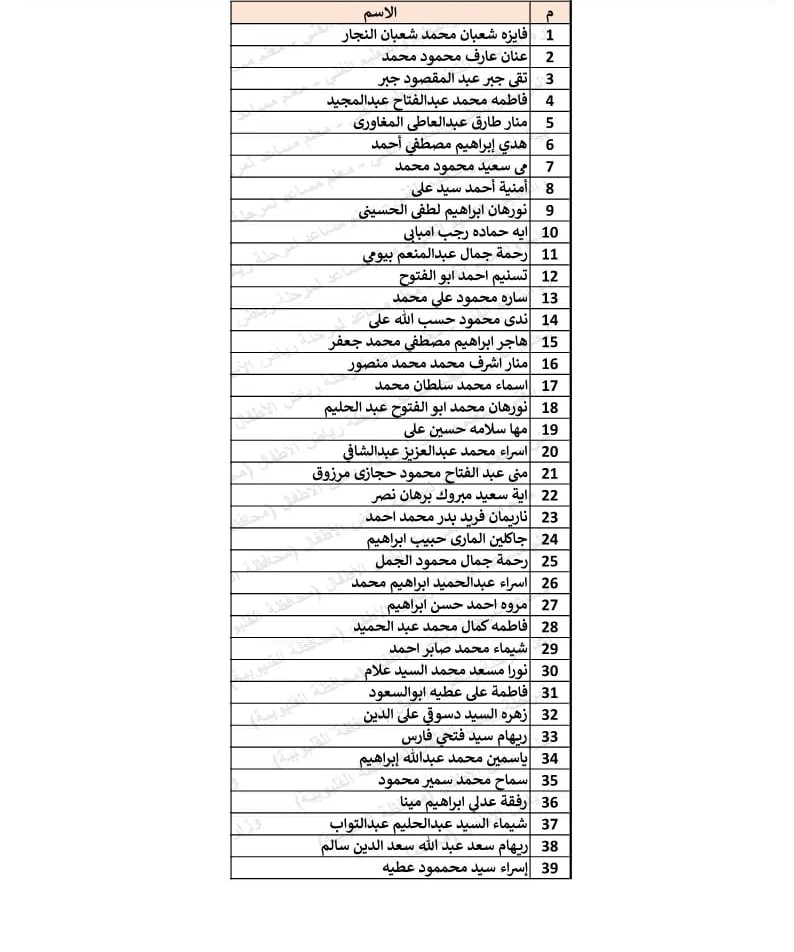 م الاسم
1 فايزه شعبان محمد شعبان النجار
2 عنان عارف محمود محمد
3 تقى جبر عبد المقصود جبر
4 فاطمه محمد عبدالفتاح عبدالمجيد
5 منار طارق عبدالعاطى المغاورى
6 هدي إبراهيم مصطفي أحمد
7 مى سعيد محمود محمد
8 أمنية أحمد سيد على
9 نورهان ابراهيم لطفى الحسينى
10 ايه حماده رجب امبابى
11 رحمة جمال عبدالمنعم بيومي
12 تسنيم احمد ابو الفتوح
13 ساره محمود علي محمد
14 ندى محمود حسب الله على
15 هاجر ابراهيم مصطفي محمد جعفر
16 منار اشرف محمد محمد منصور
17 اسماء محمد سلطان محمد
18 نورهان محمد ابو الفتوح عبد الحليم
19 مها سلامه حسين على
20 اسراء محمد عبدالعزيز عبدالشافي
21 منى عبد الفتاح محمود حجازى مرزوق
22 اية سعيد مبروك برهان نصر
23 ناريمان فريد بدر محمد احمد
24 جاكلين المارى حبيب ابراهيم
25 رحمة جمال محمود الجمل
26 اسراء عبدالحميد ابراهيم محمد
27 مروه احمد حسن ابراهيم
28 فاطمه كمال محمد عبد الحميد
29 شيماء محمد صابر احمد
30 نورا مسعد محمد السيد علام
31 فاطمة على عطيه ابوالسعود
32 زهره السيد دسوقي على الدين
33 ريهام سيد فتحي فارس
34 ياسمين محمد عبدالله إبراهيم
35 سماح محمد سمير محمود
36 رفقة عدلي ابراهيم مينا
37 شيماء السيد عبدالحليم عبدالتواب
38 ريهام سعد عبد الله سعد الدين سالم
39 إسراء سيد محممود عطيه